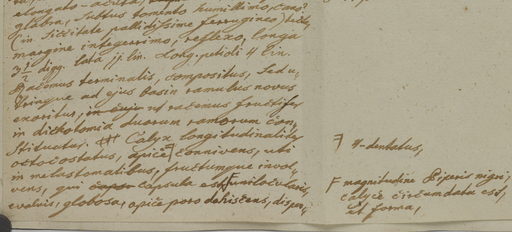 elongato-acuta,
glabra, subtus tomento humillimo,
(in siccitate pallidissime ferrugineo) tecta,
margine integerrimo, reflexo, longa
3 1/2 digg. lata 11 lin. Long. petioli 4 lin.
Racemus terminalis, compositus, sed u-
trinque ad ejus basin ramulus novus
exoritur, in cujo ut racemus fructifer
in dichotomia duorum ramorum con-
stituatur. Calyx longitudinaliter
octocostatus, apice connivens, uti
in melastomatibus, fructumque invol-
vens, qui capsula est unilocularis,
evalvis, globosa, apice poro dehiscens, disper-
4-dentatus,
magnitudine Piperis nigri,
calyce circumdata est,
et forma,